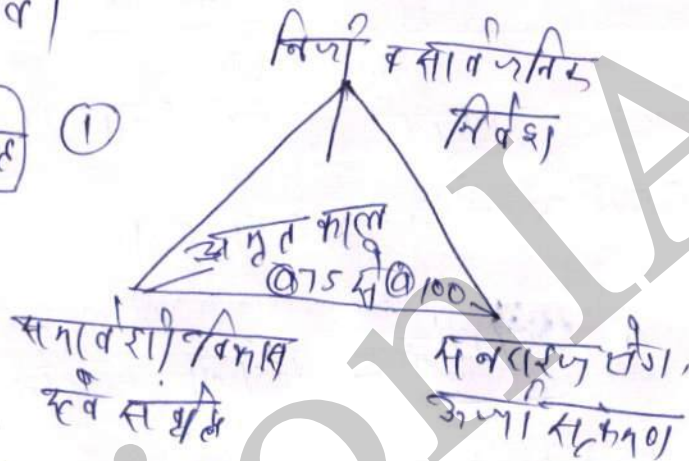 ①
निजी व सार्वजनिक
निवेश
अमृत काल
@75 से @100
समावेशी विकास
एवं समृद्धि
ऊर्जा संक्रमण